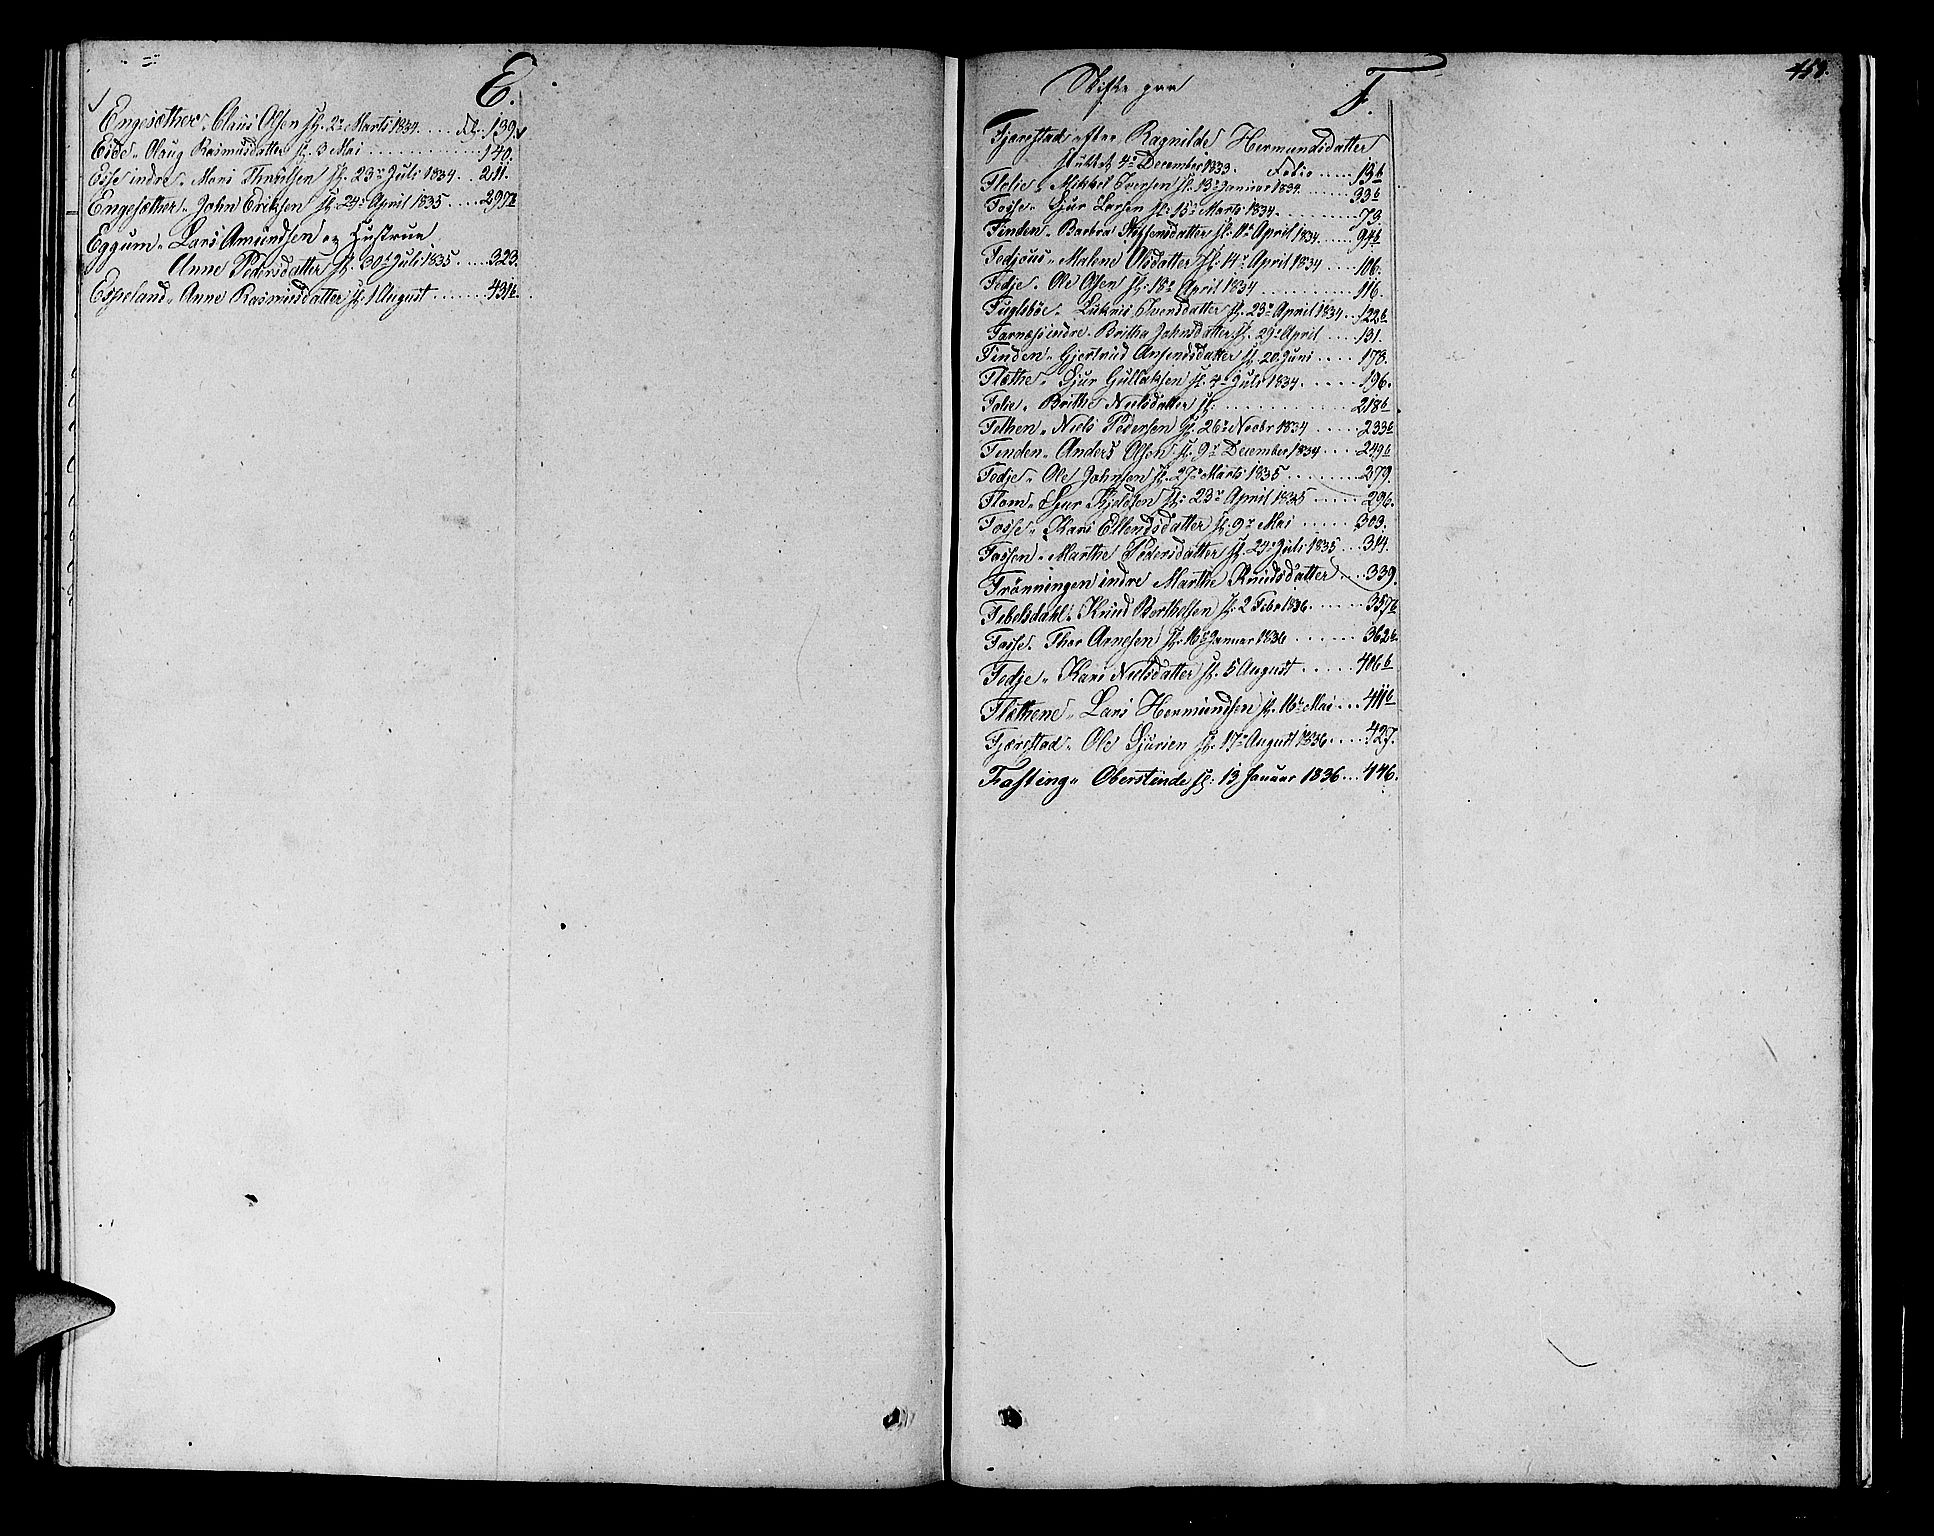 E.
Engesæther " Claus Olsen sl. 2n Marts 1834 .... Fol. 139.
Eide " Olaug Rasmusdatter sl. 3 Mai .......... 140.
Eise indre " Mari sl. 23n Juli 1834 .. 211.
Engesæther " John Eriksen sl. 24n April 1835 .... 297b
Eggum " Lars Amundsen og Hustrue
Anne Pedersdatter sl. 30t Juli 1835 .... 323.
Espeland " Anne Rasmusdatter sl. 1 August ...... 431b
Skifte paa F. 459.
Fjærestad efter Ragnilde Hermundsdatter
sluttet 4n December 1833. Folio ..... 13b
Flelie " Mikkel Iversen sl. 13n Januar 1834. 33b
Fosse " Sjur Larsen sl. 15n Marts 1834 ......... 73.
Finden " Barbra Steffensdatter sl. 11n April 1834 ..... 94b
Fedjeus " Malene Olsdatter sl. 14n April 1834 .... 106.
Fedje " Ole Olsen sl. 18n April 1834 ......... 116.
Fuglsbøe " Lukris Iversdatter sl. 23n April 1834 .. 122b
Farnæs indre " Britha Johnsdatter sl. 29n April .... 131.
Finden " Gjertrud sl. 20 Juni ..... 178.
Fløthe " Sjur Gullaksen sl. 4n Juli 1834 ...... 196.
Folie " Brithe Nielsdatter sl. ........... 218b
Fethen " Niels Pedersen sl. 26n Novbr 1834 ..... 233b
Finden " Anders Olsen sl. 9n December 1834 .... 249b
Fedje " Ole Johnsen sl. 27n Marts 1835 ........ 279.
Flom " Sjur sl. 23n April 1835 ..... 296.
Fosse " Kari Ellendsdatter sl. 9n Mai ...... 303.
Fossen " Marthe Pedersdatter sl. 24n Juli 1835 ... 314.
Frønningen indre Marthe Knudsdatter .... 339.
Fibelsdahl " Knud Berthelsen sl. 2 Febr 1836 ...... 357b
Fosse " Thor Arnesen sl. 16n Januar 1836 ...... 362b
Fedje " Kari Nielsdatter sl. 5 August ..... 406b
Fløthene " Lars Hermundsen sl. 16n Mai ... 411b
Fjærestad " Ole Sjursen sl. 17n August 1836 .... 427.
Fasting " Oberstinde sl. 13 Januar 1836 ... 446.